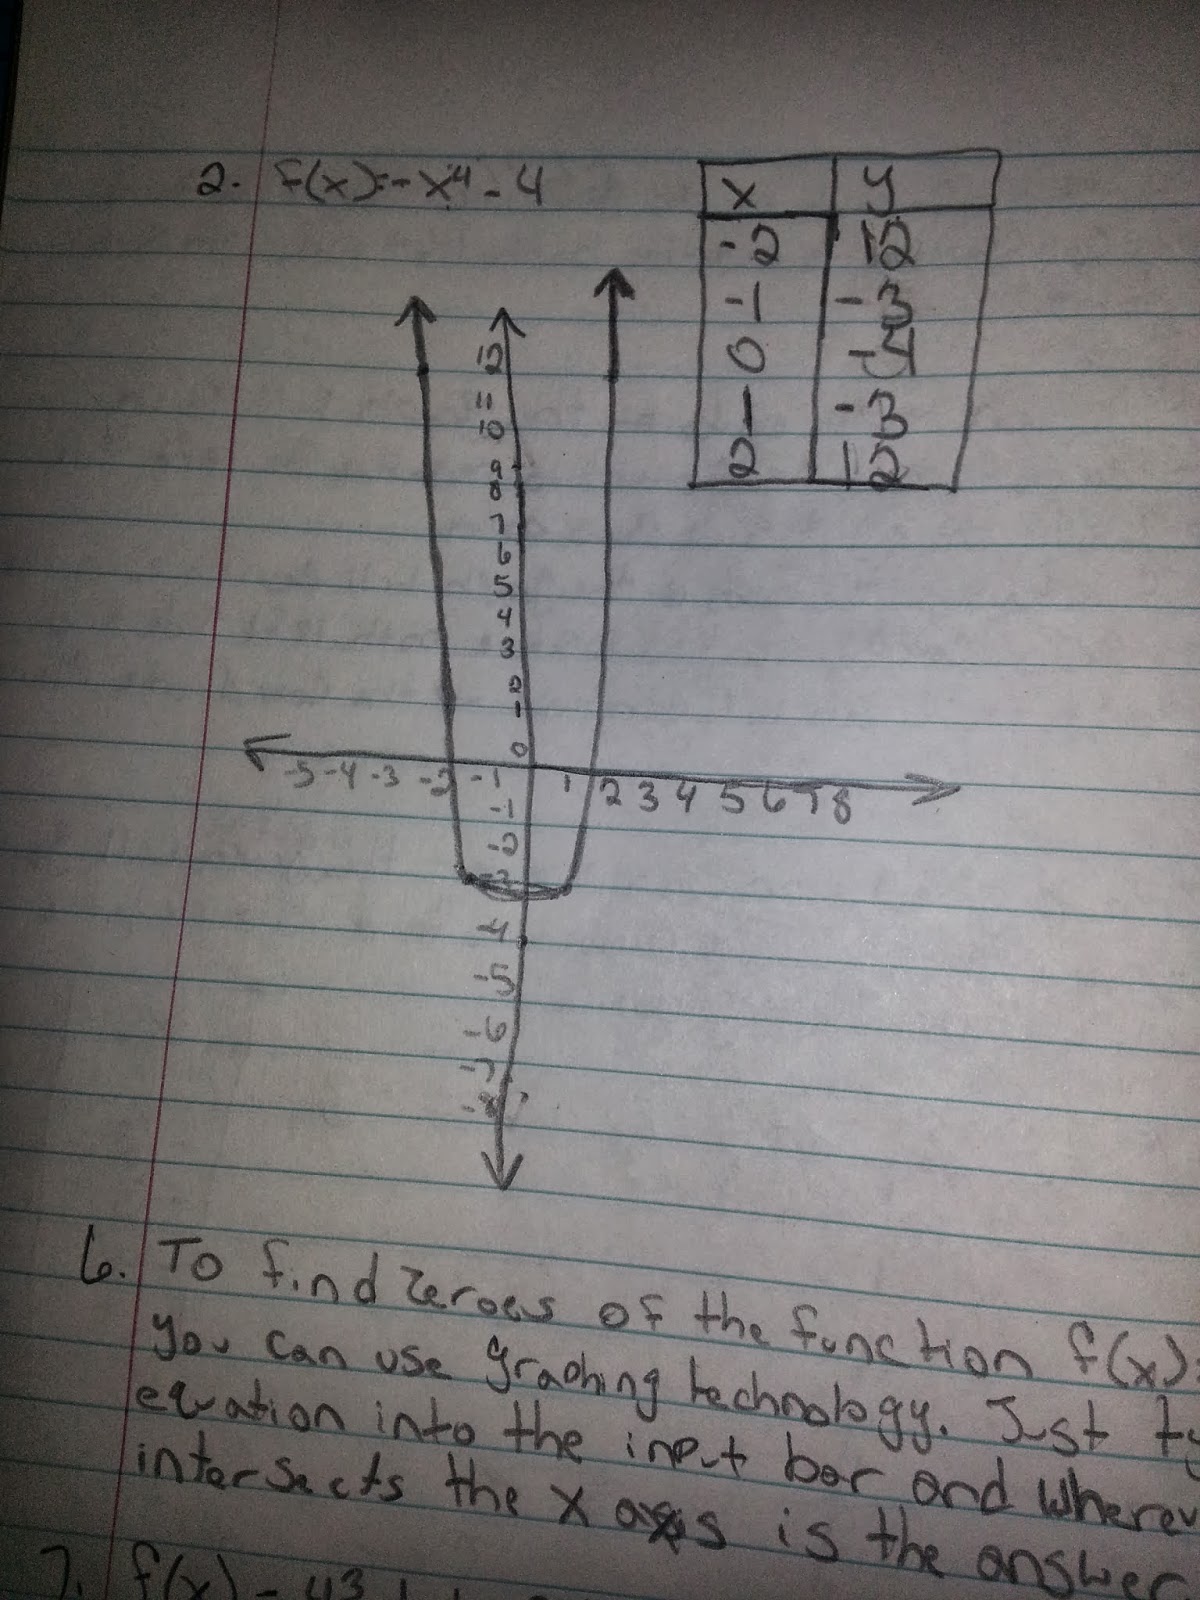 2. f(x)=-x⁴-4
x y
-2 12
-1 -3
0 -4
1 -3
2 12
12
11
10
9
8
7
6
5
4
3
2
1
0
-5 -4 -3 -2 -1 1 2 3 4 5 6 7 8
-1
-2
-3
-4
-5
-6
-7
-8
6. To find zeroes of the function f(x)=
you can use graphing technology. Just ty
equation into the input bar and wherev
intersects the x axis is the answer
7. f(x)